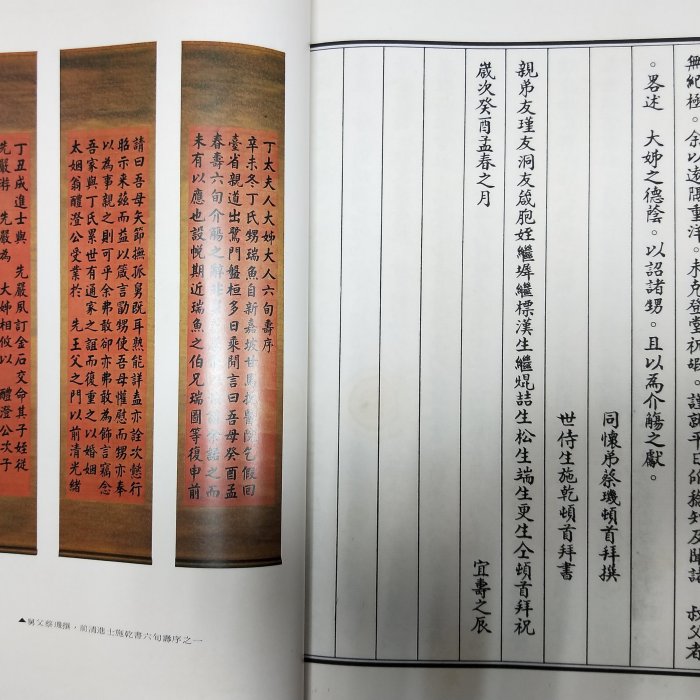 無紀極。余以遠隔重洋。未克登堂祝嘏。謹就平日稔知及 叔父者
。畧述 大姊之德蔭。以詔諸甥。且以為介觴之獻。
同懷弟蔡璣頓首拜撰
世侍生施乾頓首拜書
親弟友瑾友洞友箴胞姪繼墀繼標漢生繼焜喆生松生端生更生仝頓首拜祝
歲次癸酉孟春之月 宜壽之辰
丁太夫人大姊大人六旬壽序
辛未冬丁氏甥瑞魚自新嘉坡甘馬醫院乞假回
臺省親道出鷺門盤桓多日乘閒言曰吾母癸酉孟
春壽六旬介觴之辭 諾之而
未有以應也設帨期近瑞魚之伯兄瑞圖等復申前
請曰吾母矢節撫孤舅既耳熟能詳盍亦詮次懿行
昭示來茲而益以箴言勖甥使吾母懽慰而甥亦奉
以為事親之則可乎余弗敢卻亦弗敢為飾言竊念
吾家與丁氏累世有通家之誼而復重之以婚姻
太姻翁醴澄公受業於 先王父之門以前清光緒
丁丑成進士與 先嚴夙訂金石交命其子姪從
先嚴游 先嚴為 大姊相攸以 醴澄公次子
▲舅父蔡璣撰，前清進士施乾書六旬壽序之一